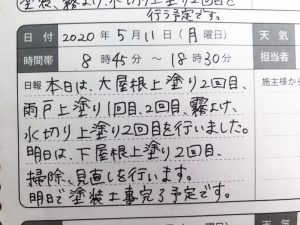 塗装、霧よけ、水切り上塗り2回目を
行う予定です。
日付 2020年5月11日(月曜日) 天気
時間帯 8時45分~18時30分 担当者
日報 本日は、大屋根上塗り2回目、 施主様から
雨戸上塗り1回目、2回目、霧よけ、
水切り上塗り2回目を行いました。
明日は、下屋根上塗り2回目、
掃除、見直しを行います。
明日で塗装工事完了予定です。
曜日) 天気